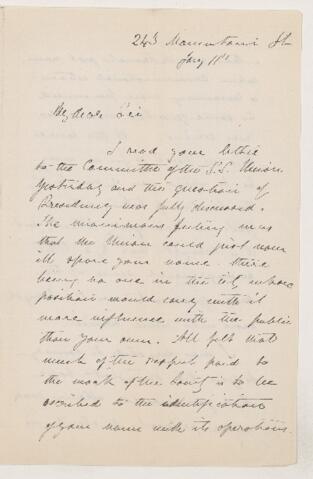 243 Mountain St
Jany 11th
My dear Sir
I read your letter
to the Committee of the S.S. Union
yesterday and the question of
Presidency was fully discussed.
The unanimous feeling was
that the Union could just now
ill spare your name there
being no one in the city whose
position would carry with it
more influence with the public
than your own. All felt that
much of the respect paid to
the work of the Society is to be
ascribed to the identification
of your name with its operations.